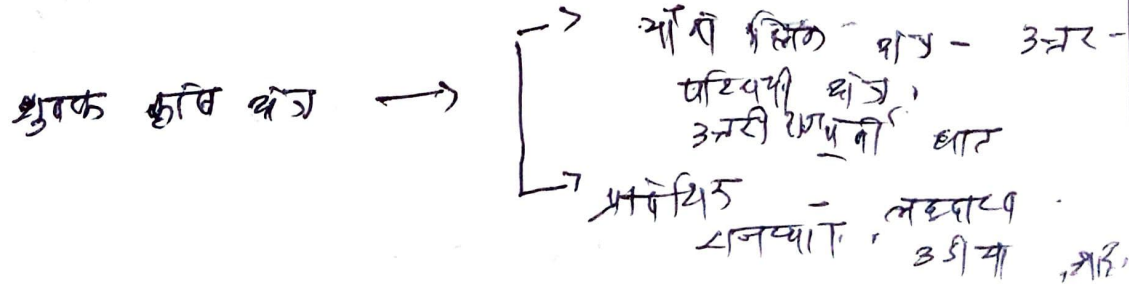 शुष्क कृषि क्षेत्र →
→ भौगोलिक क्षेत्र - उत्तर-
पश्चिमी क्षेत्र,
उत्तरी पूर्वी घाट
→ प्रादेशिक -
राजस्थान, लद्दाख
उड़ीसा, आदि